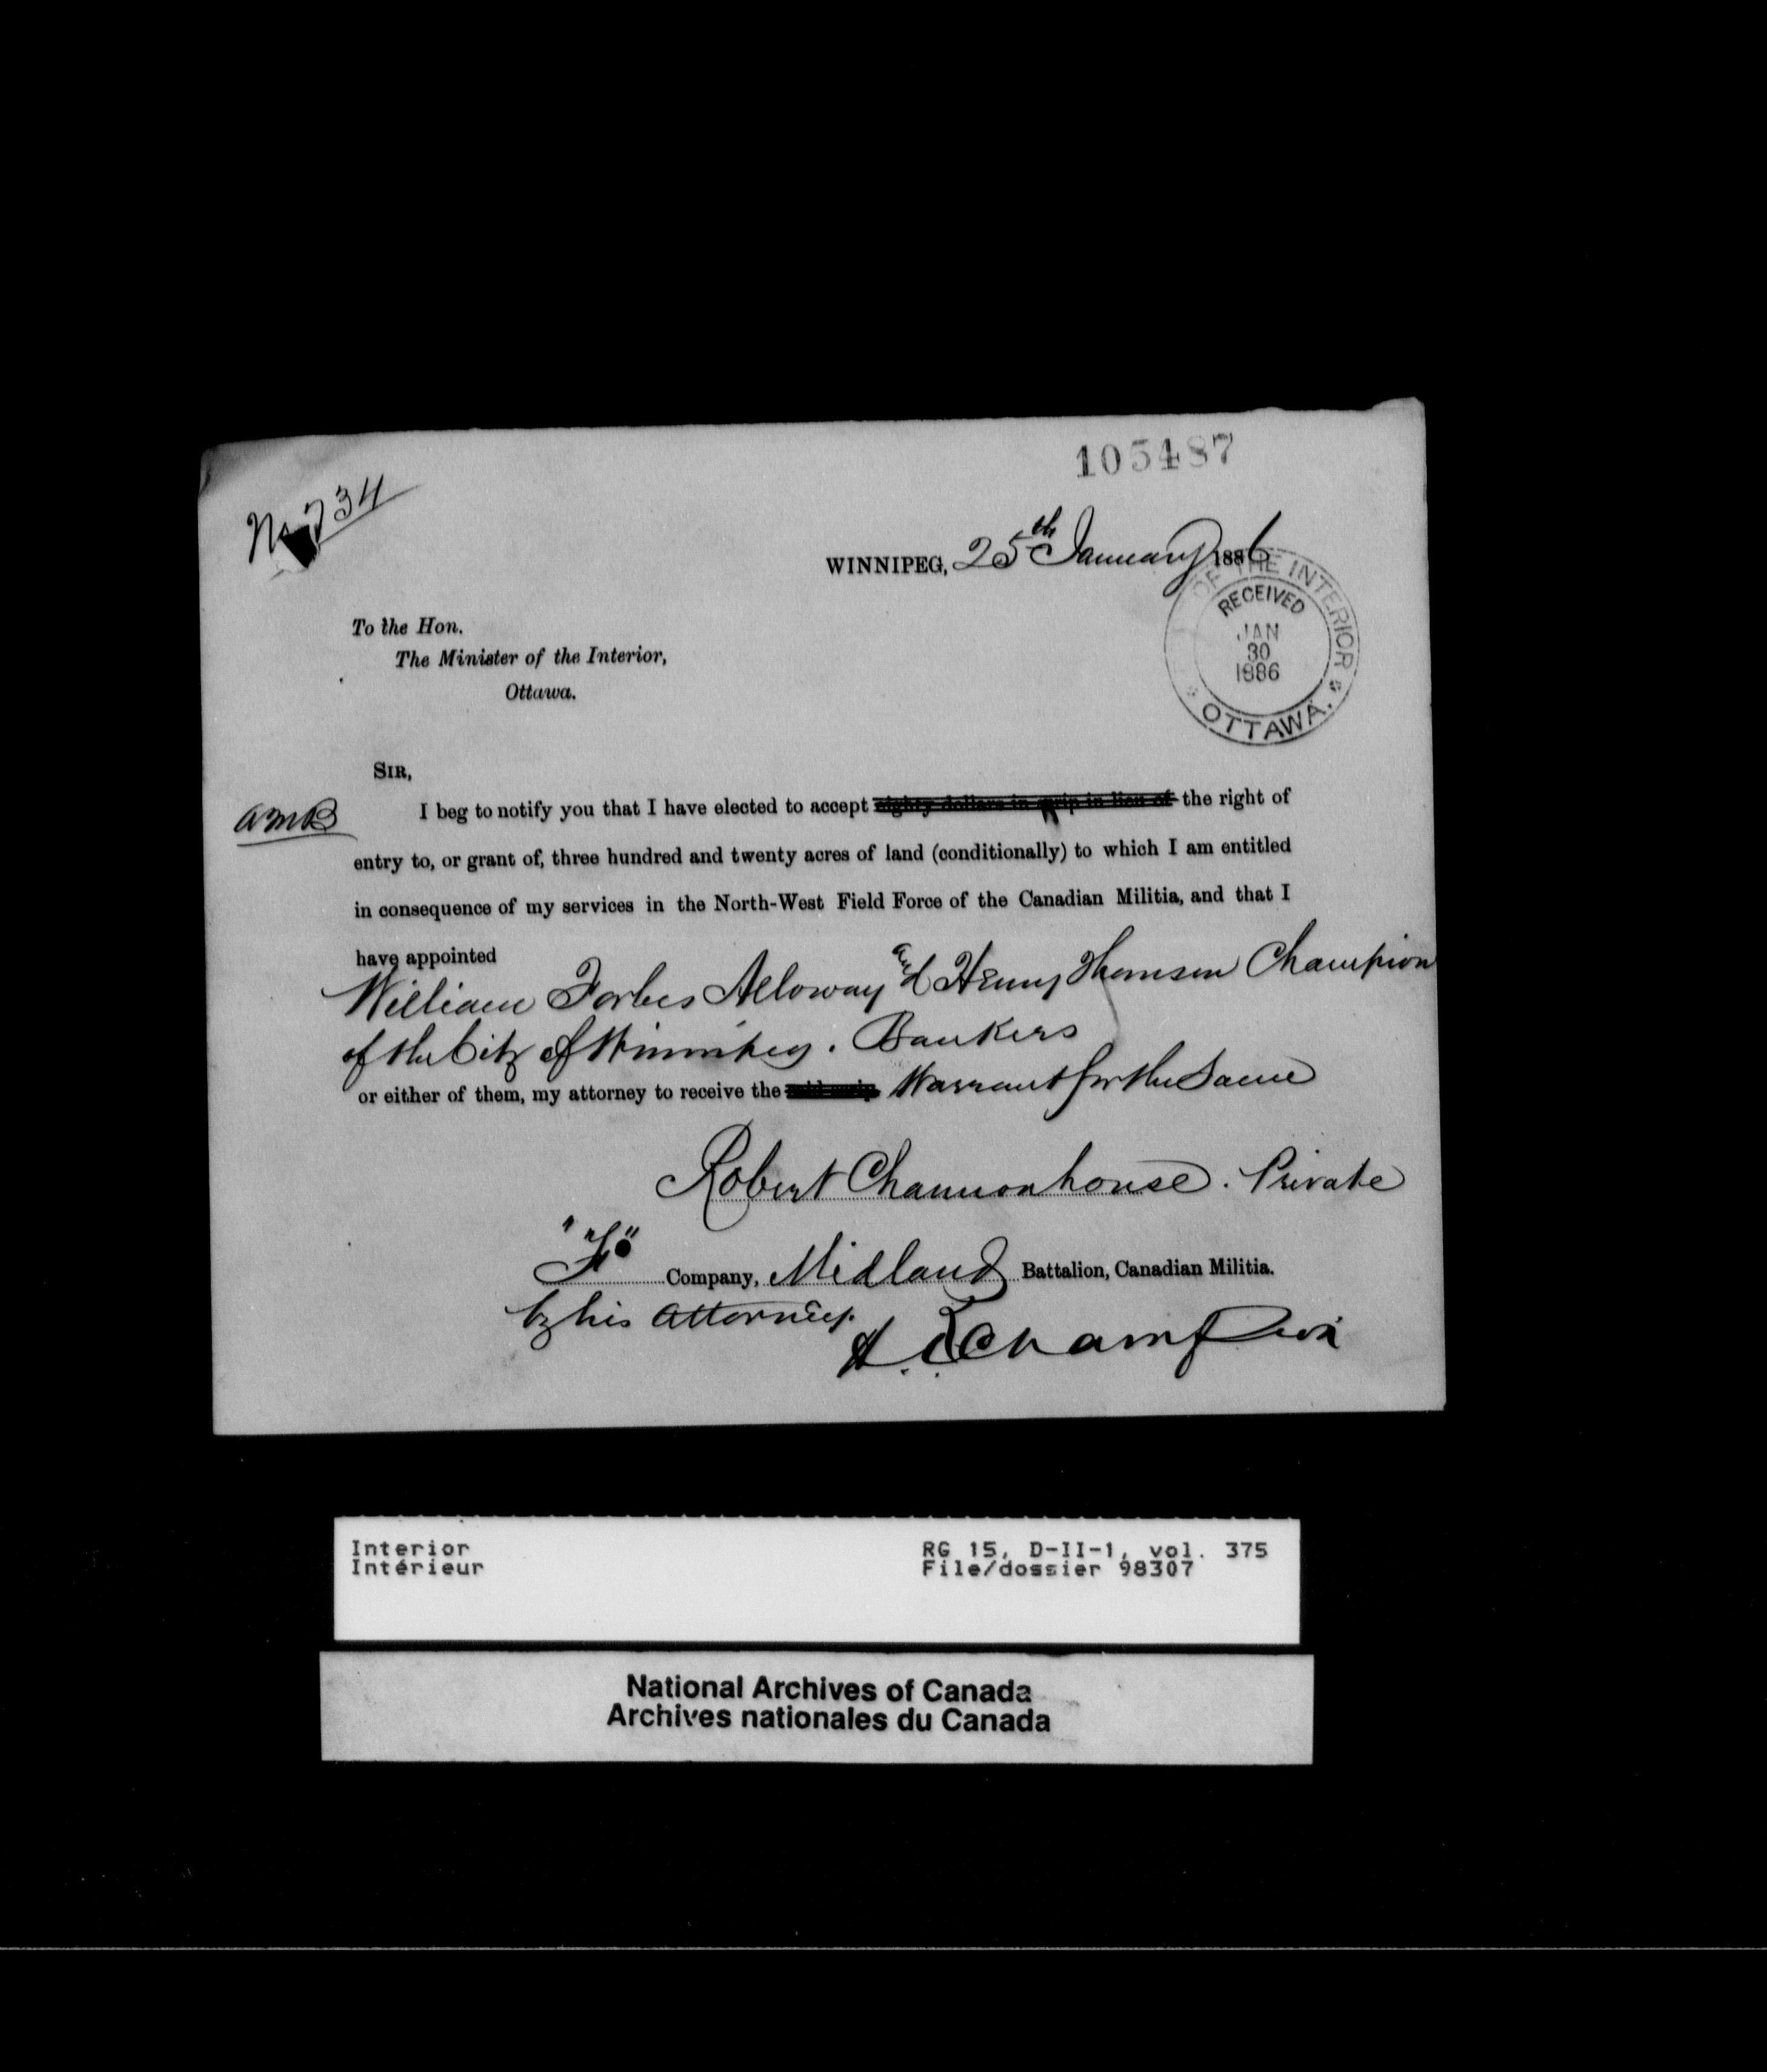 105487
No 734
WINNIPEG, 25th January 1886
OF THE INTERIOR
RECEIVED
JAN
30
1886
OTTAWA.
To the Hon.
The Minister of the Interior,
Ottawa.
SIR,
AMB
I beg to notify you that I have elected to accept eighty dollars in scrip in lieu of the right of
entry to, or grant of, three hundred and twenty acres of land (conditionally) to which I am entitled
in consequence of my services in the North-West Field Force of the Canadian Militia, and that I
have appointed
William Forbes Alloway and Henry Thomson Champion
of the City of Winnipeg. Bankers
or either of them, my attorney to receive the said scrip Warrant for the Same
Robert Channonhouse. Private
"F" Company, Midland Battalion, Canadian Militia.
by his Attorney.
H. T. Champion
Interior
Intérieur
RG 15, D-II-1, vol. 375
File/dossier 98307
National Archives of Canada
Archives nationales du Canada